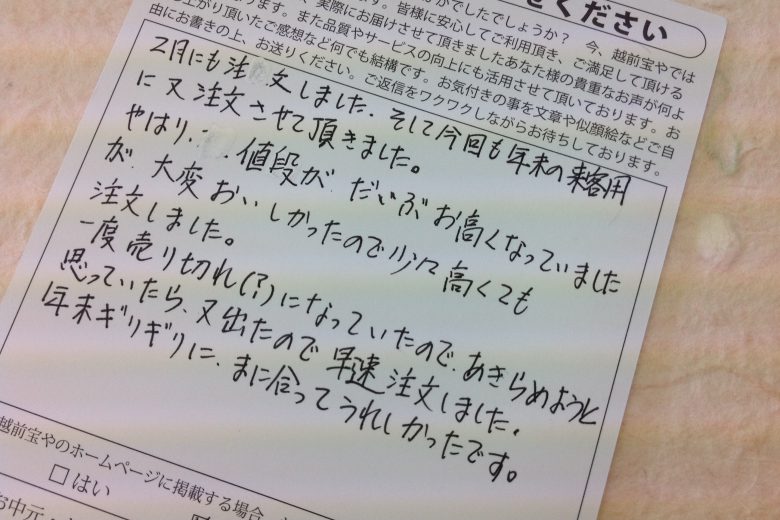 せください
かがでしたでしょうか？　今、越前宝やでは
、実際にお届けさせて頂きましたあなた様の貴重なお声が何よ
ります。また品質やサービスの向上にも活用させて頂いております。お
し上がり頂いたご感想など何でも結構です。お気付きの事を文章や似顔絵などご自
由にお書きの上、お送りください。ご返信をワクワクしながらお待ちしております。
2月にも注文しました．そして今回も年末の来客用
に又注文させて頂きました。
やはり．．．値段が、だいぶお高くなっていました
が、大変おいしかったので少々高くても
注文しました。
一度売り切れ(？)になっていたので、あきらめようと
思っていたら、又出たので早速注文しました．
年末ギリギリに、まに合ってうれしかったです。
越前宝やのホームページに掲載する場合、
□はい
お中元・